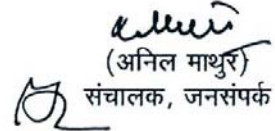 (अनिल माथुर)
संचालक, जनसंपर्क